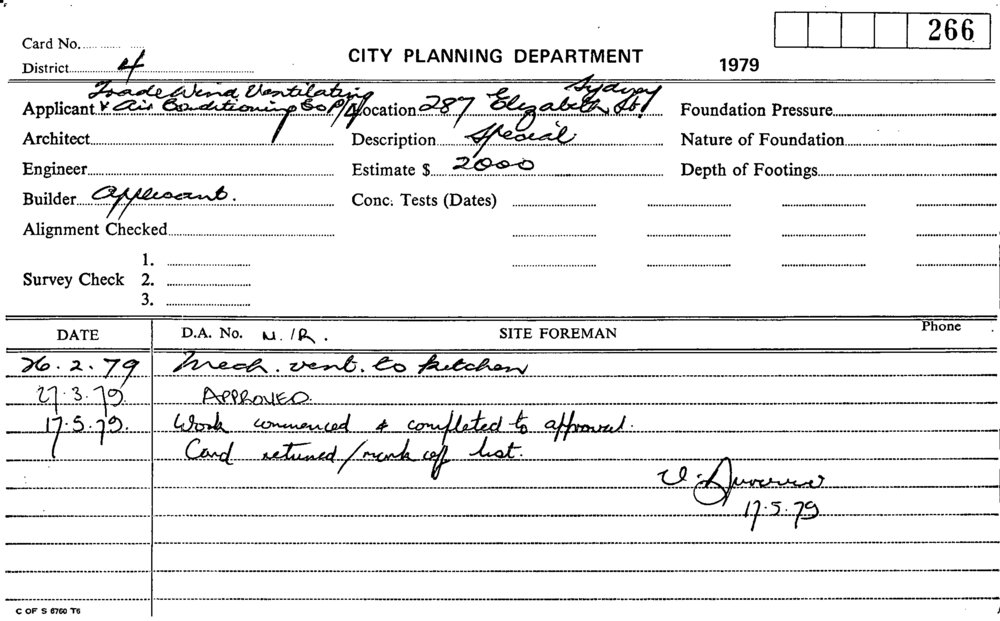 266
Card No.
CITY PLANNING DEPARTMENT
1979
District 4
Applicant Trade Wind Ventilating & Air Conditioning Co P/L
Location 287 Elizabeth St Sydney
Foundation Pressure
Architect
Description Special
Nature of Foundation
Engineer
Estimate $ 2000
Depth of Footings
Builder Applicant.
Conc. Tests (Dates)
Alignment Checked
1.
Survey Check 2.
3.
DATE D.A. No. N./R. SITE FOREMAN Phone
26.2.79 Mech. vent. to kitchen
27.3.79. APPROVED.
17.5.79. Work commenced & completed to approval.
Card returned/mark off list.
17.5.79
C OF S 6760 T6